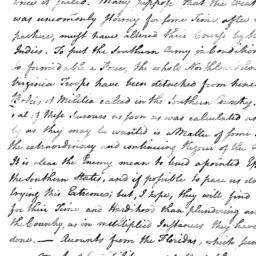 since it failed. Many suppose that the weat
was uncommonly stormy for some Time after
parture, must have altered their Course by
Indies. To put the Southern Army in Condition
so formidable a Force, the whole North
Virginia Troops have been detached from hence
Bodies of Militia called in the Southern Country.
ial of these Succours as soon as was calculated
ly as they may be waited is a Matter of some
the extraordinary and continuing Rigour of the
It is clear the Enemy mean to bend a pointed Eff
the Southern States, and if possible to pare us do
loying this Extreme; but, I hope, they will find
for their Time and Hardihood than plundering an
the Country, as in multiplied Instances they hav
done. — Accounts from the Floridas, which